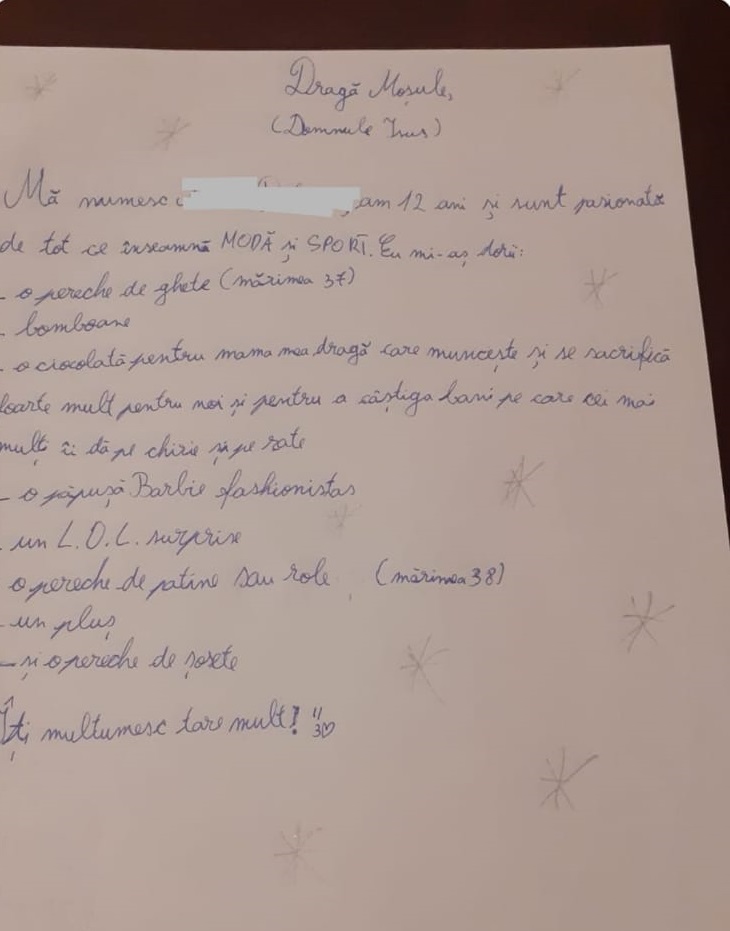 Dragă Moșule,
(Domnule Inus)
Mă numesc am 12 ani și sunt pasionată
de tot ce înseamnă MODĂ și SPORT. Eu mi-aș dorii:
- o pereche de ghete (mărimea 37)
- bomboane
- o ciocolată pentru mama mea dragă care muncește și se sacrifică
foarte mult pentru noi și pentru a câștiga bani pe care cei mai
mulți îi dă pe chirie și pe rate
- o păpușă Barbie fashionistas
- un L.O.L. surprise
o pereche de patine sau role (mărimea 38)
- un pluș
- și o pereche de șosete
Îți multumesc tare mult!